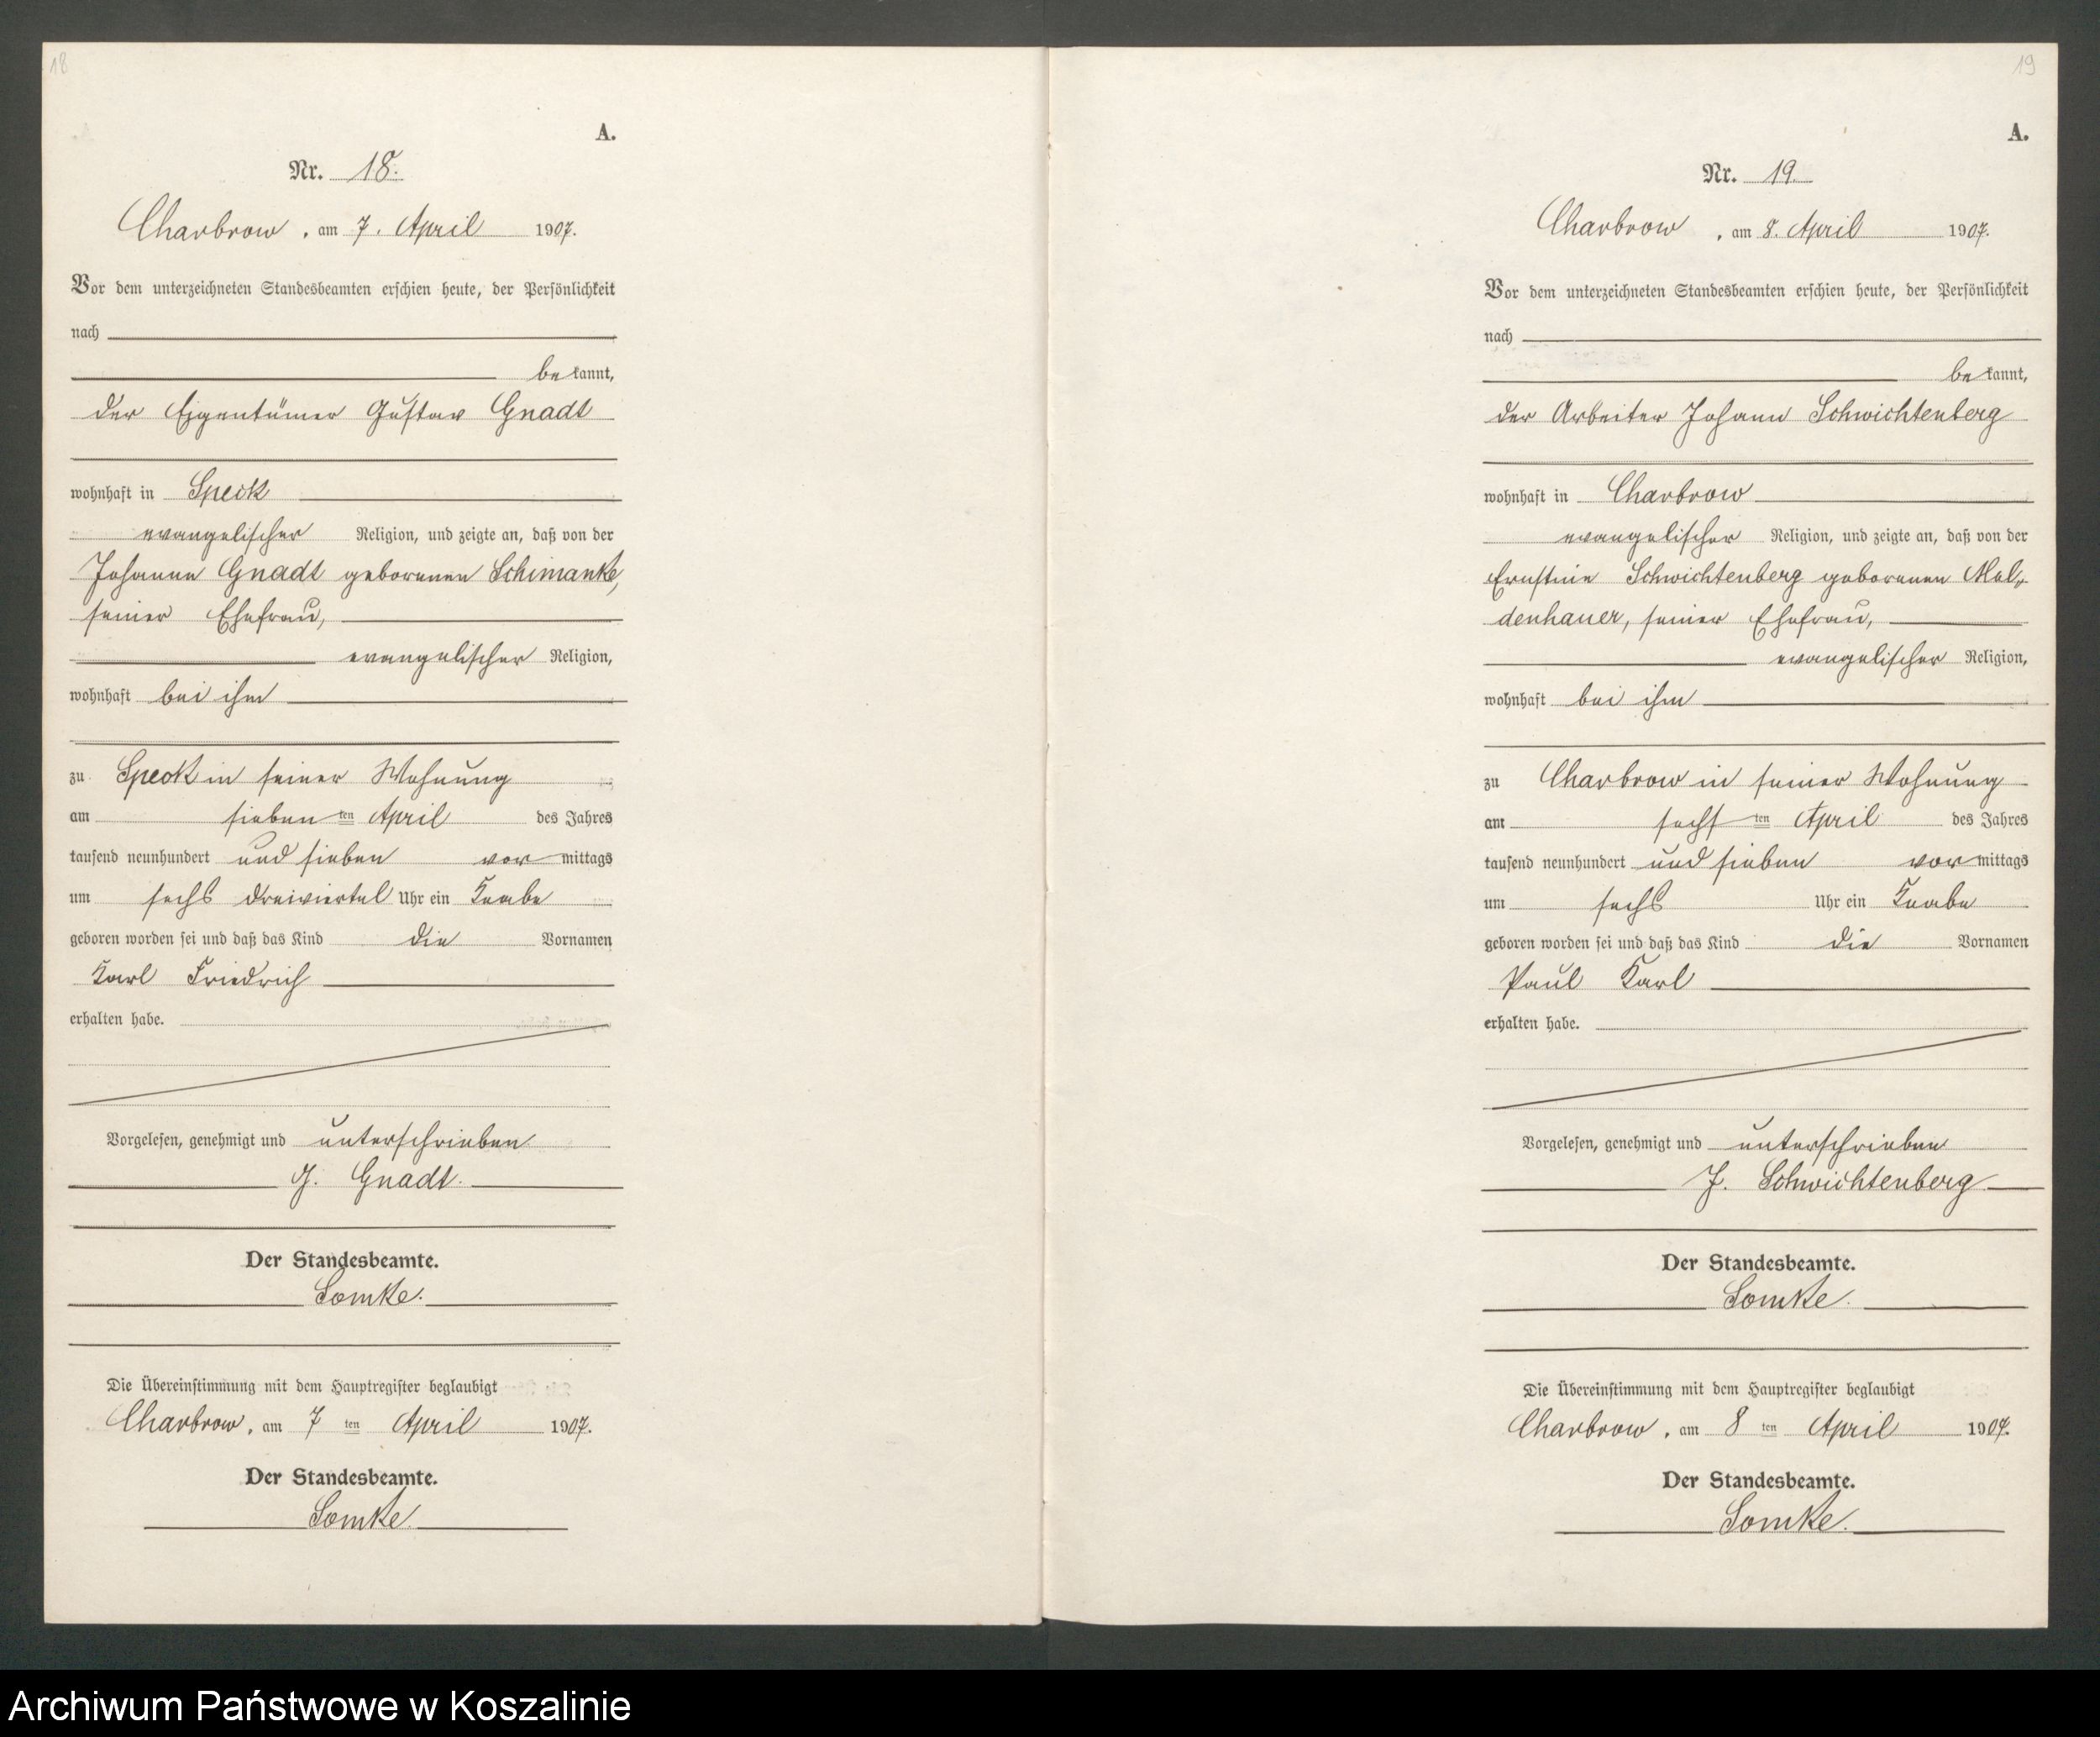 18
A.
Nr. 18.
Charbrow, am 7. April 1907.
Vor dem unterzeichneten Standesbeamten erschien heute, der Persönlichkeit
nach
bekannt,
der Eigentümer Gustav Gnadt
wohnhaft in Speck
evangelischer Religion, und zeigte an, daß von der
Johanne Gnadt geborenen Schimanke,
seiner Ehefrau,
evangelischer Religion,
wohnhaft bei ihm
zu Speck in seiner Wohnung
am sieben ten April des Jahres
tausend neunhundert und sieben vormittags
um sechs dreiviertel Uhr ein Knabe
geboren worden sei und daß das Kind die Vornamen
Karl Friedrich
erhalten habe.
Vorgelesen, genehmigt und unterschrieben
G. Gnadt.
Der Standesbeamte.
Somke.
Die Übereinstimmung mit dem Hauptregister beglaubigt
Charbrow, am 7 ten April 1907.
Der Standesbeamte.
Somke.
19
A.
Nr. 19.
Charbrow, am 8. April 1907.
Vor dem unterzeichneten Standesbeamten erschien heute, der Persönlichkeit
nach
bekannt,
der Arbeiter Johann Schwichtenberg
wohnhaft in Charbrow
evangelischer Religion, und zeigte an, daß von der
Ernstine Schwichtenberg geborenen Mol-
denhauer, seiner Ehefrau,
evangelischer Religion,
wohnhaft bei ihm
zu Charbrow in seiner Wohnung
am sechs ten April des Jahres
tausend neunhundert und sieben vormittags
um sechs Uhr ein Knabe
geboren worden sei und daß das Kind die Vornamen
Paul Karl
erhalten habe.
Vorgelesen, genehmigt und unterschrieben
J. Schwichtenberg
Der Standesbeamte.
Somke.
Die Übereinstimmung mit dem Hauptregister beglaubigt
Charbrow, am 8 ten April 1907.
Der Standesbeamte.
Somke.
Archiwum Państwowe w Koszalinie